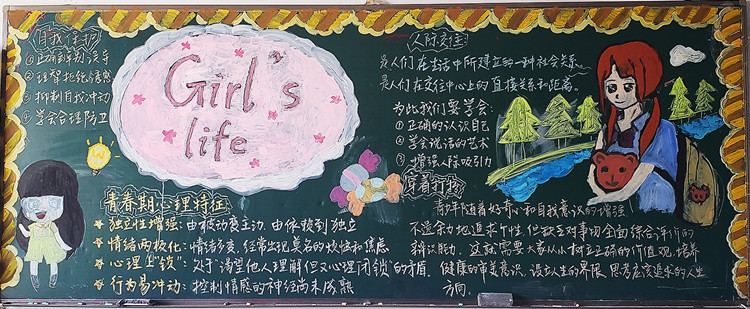 自我保护
①正确判别误导
②理智拒绝诱惑
③抑制自我冲动
④学会合理防卫
Girl's
life
青春期心理特征
独立性增强:由被动变主动、由依赖到独立
情绪两极化:情绪多变,经常出现莫名的烦恼和焦虑
心理上"锁":处于"渴望他人理解但又心理闭锁"的矛盾
行为易冲动:控制情感的神经尚未成熟
人际交往
是人们在生活中所建立的一种社会关系
是人们在交往中心上的直接关系和距离。
为此我们要学会:
①正确的认识自己
②学会说话的艺术
③增强人际吸引力
穿着打扮
青年随着好奇心和自我意识的增强
不遗余力地追求个性,但缺乏对事物全面综合评价的
辨识能力。这就需要大家从小树立正确的价值观,培养
健康的审美意识,设立人生的界限,思考应该追求的人生
方向。